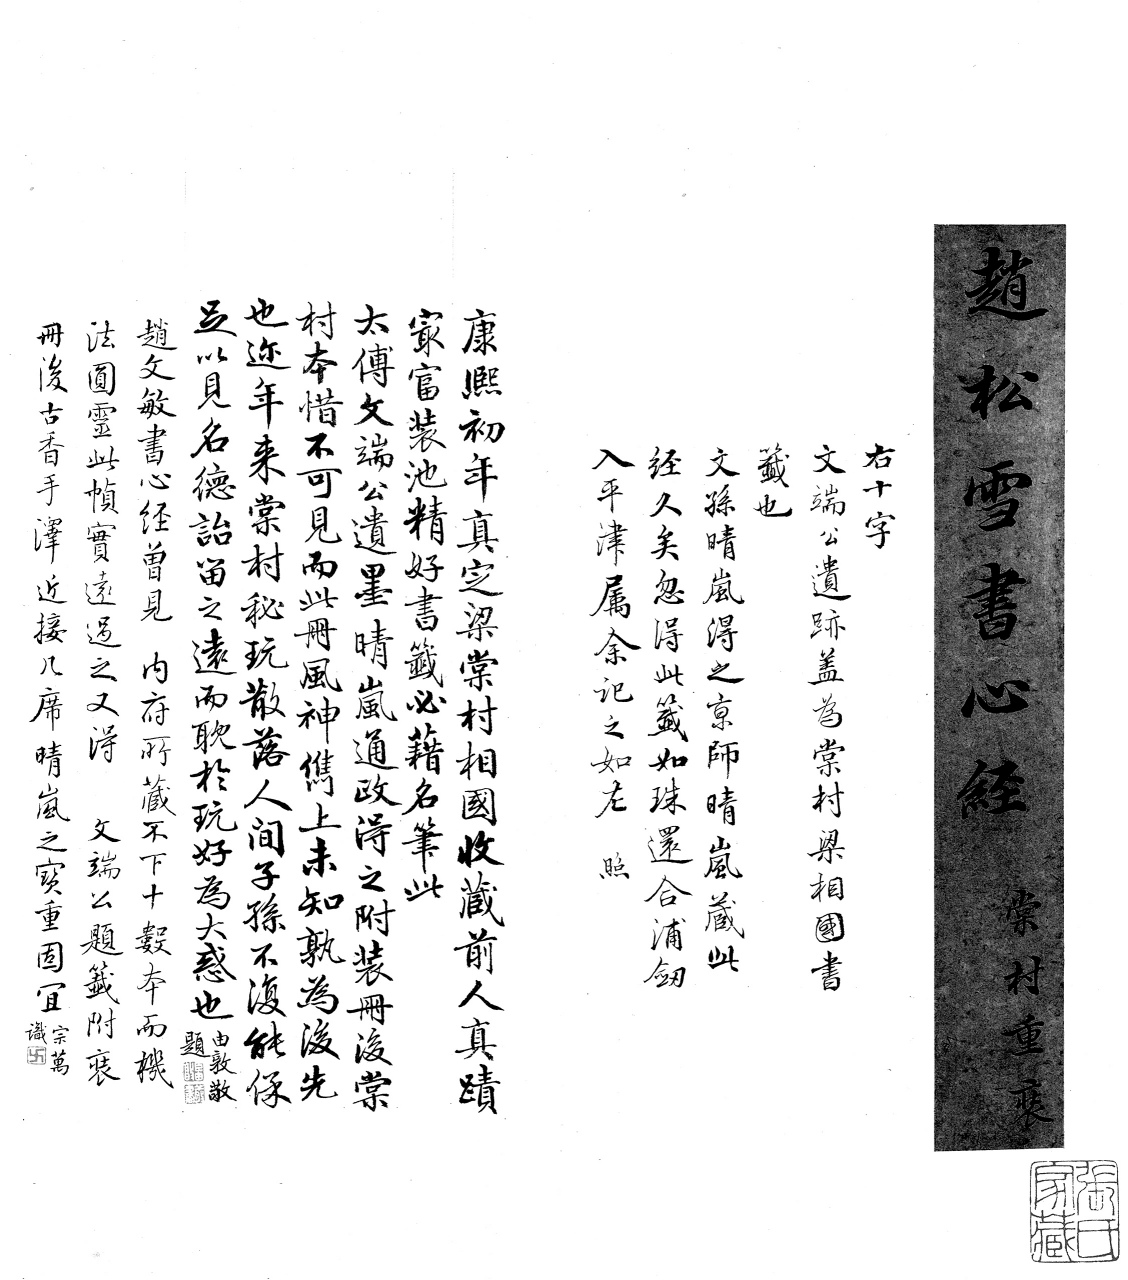 趙松雪書心経
棠村重裝
張氏家藏
右十字
文端公遺跡盖為棠村梁相國書
籤也
文孫晴嵐得之京師晴嵐蔵此
経久矣忽得此籤如珠還合浦劔
入平津属余記之如左 照
康熙初年真定梁棠村相國收蔵前人真蹟
冣富装池精好書籤必藉名筆此
太傅文端公遺墨晴嵐通政得之附装冊後棠
村本惜不可見而此冊風神儁上未知孰為後先
也迩年来棠村秘玩散落人间子孫不復能保
足以見名德詒留之遠而耽於玩好為大惑也
由敦敬
題
趙文敏書心経曾見 内府所藏不下十數本而機
法圓靈此幀實遠過之又得 文端公題籤附裝
冊後古香手澤近接几席晴嵐之寶重固宜
宗萬
識